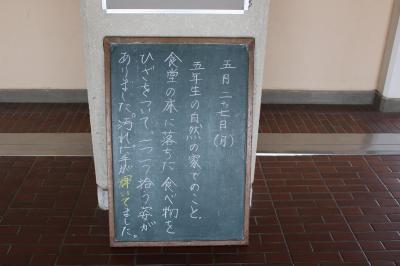 五月二十七日(月)
五年生の自然の家でのこと。
食堂の床に落ちた食べ物を
ひざをついて一つ一つ拾う姿が
ありました。汚れた手が輝いてました。